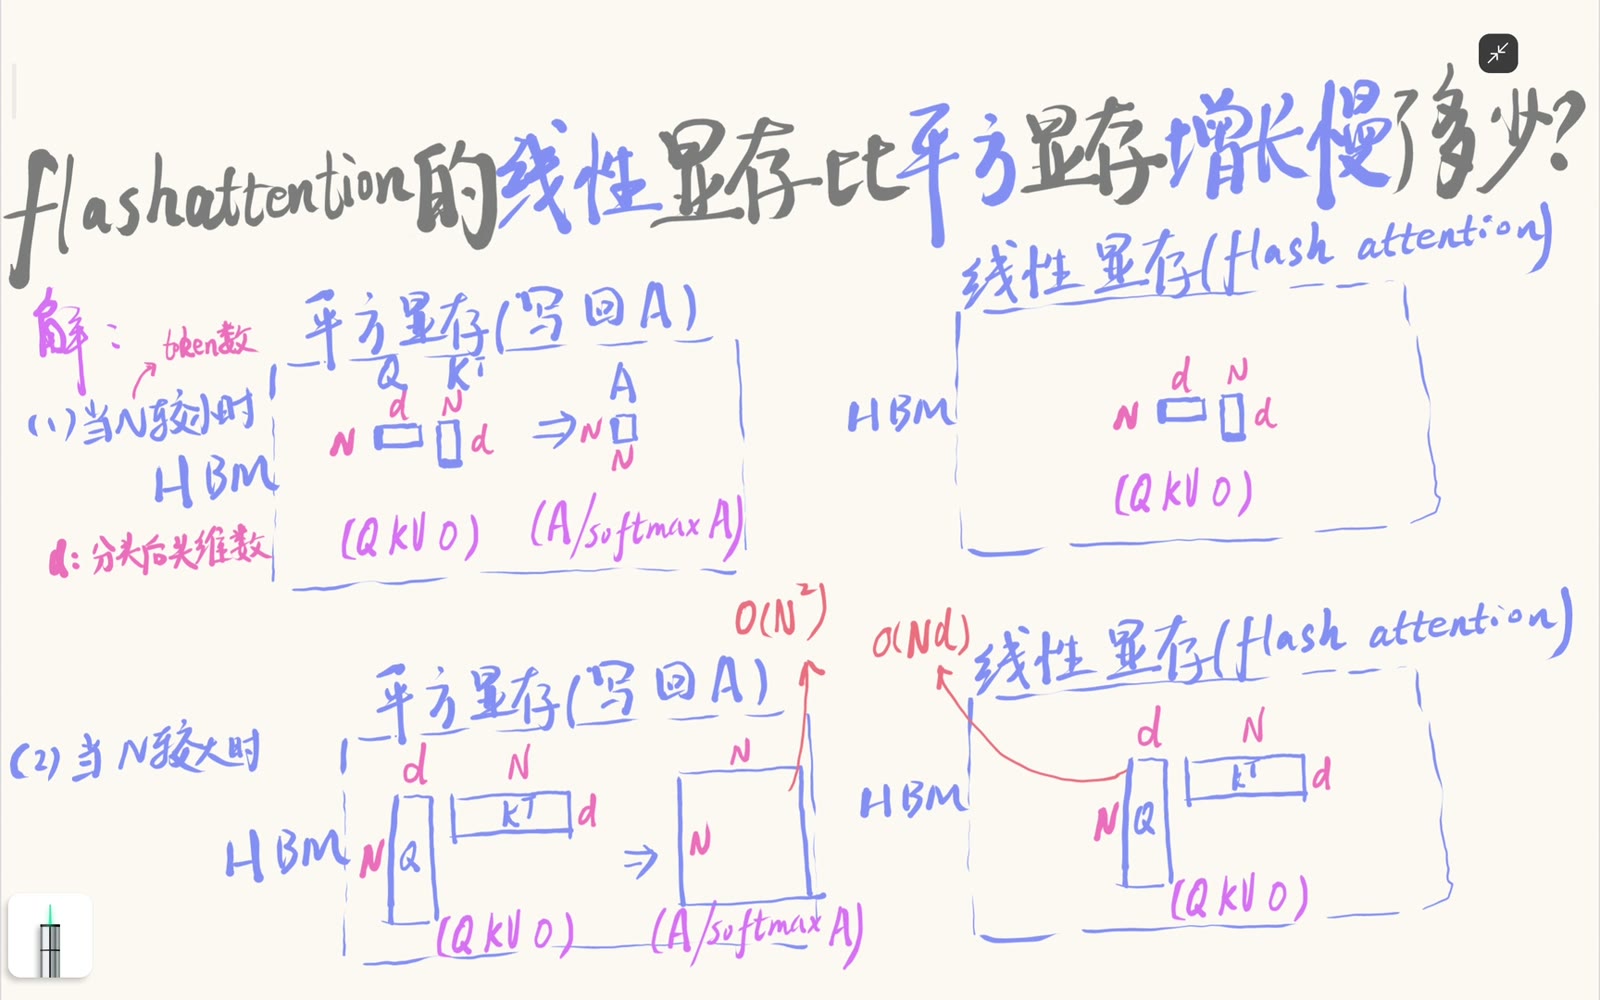 flashattention的线性显存比平方显存增长慢了多少?
解:
token数
(1)当N较小时
HBM
d:分头后头维数
平方显存(写回A)
Q K^T A
d N
N d ⇒ N
N
(QKVO) (A/softmax A)
线性显存(flash attention)
HBM
d N
N d
(QKVO)
O(N²)
O(Nd)
(2)当N较大时
平方显存(写回A)
HBM
d N N
N Q K^T d ⇒ N
(QKVO) (A/softmax A)
线性显存(flash attention)
HBM
d N
N Q K^T d
(QKVO)